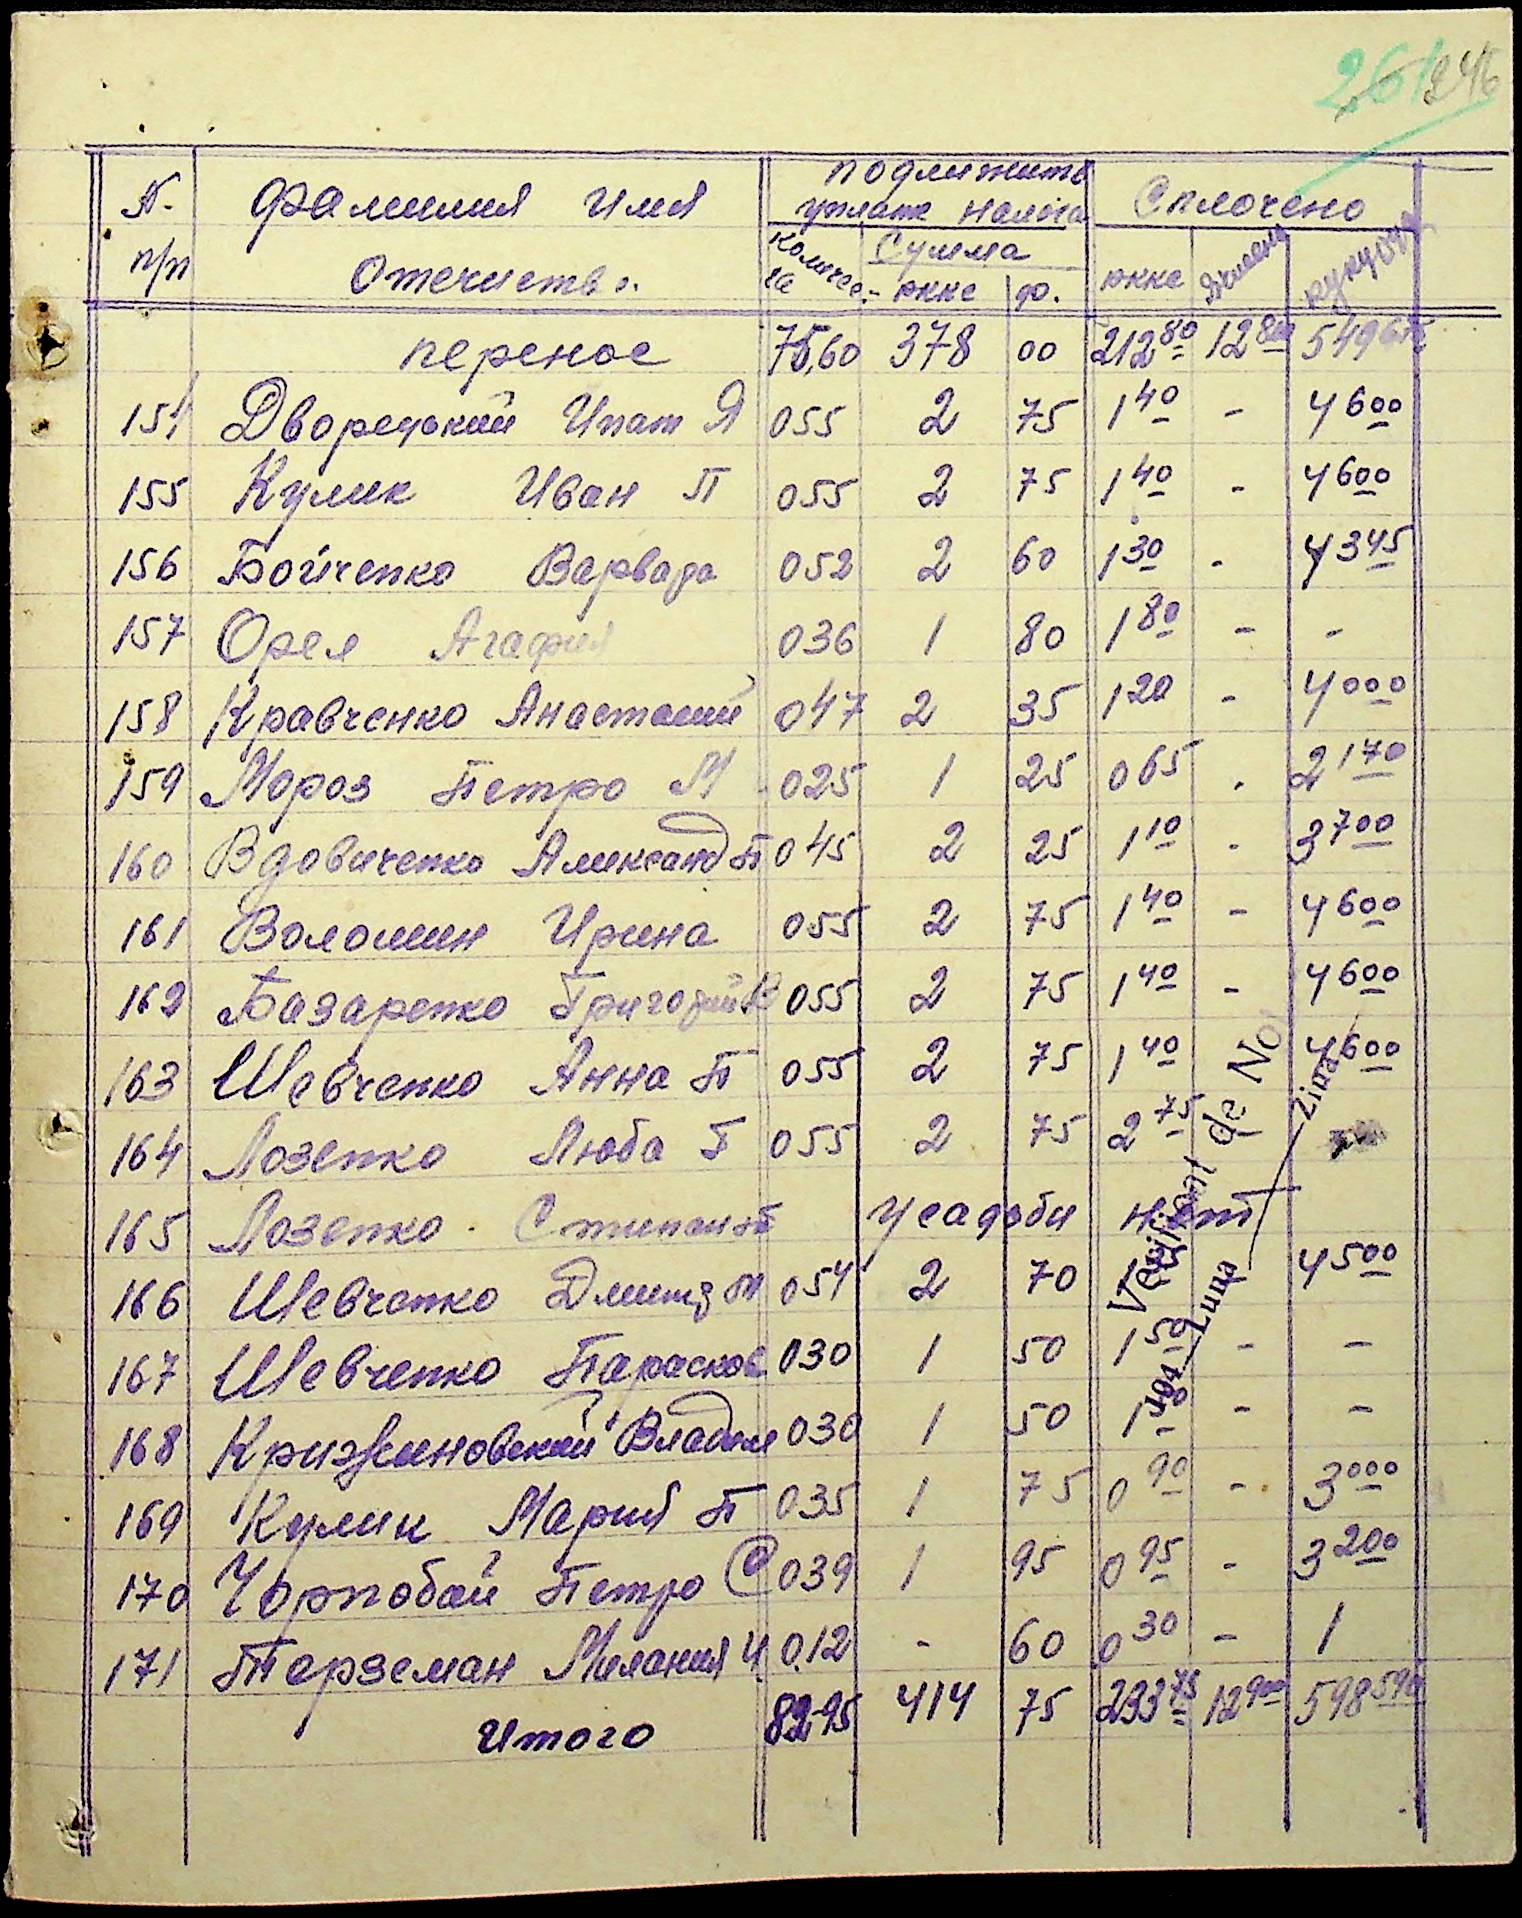 261 246
N. Фамилия Имя подлижить Сплочено
п/п Отечиство. уплате налога
Количес. га Сумма ркке Ячмень кукуруз
ркке ф.
перенос 75,60 378 00 212 80 12 800 549
154 Дворецький Ипат Я 055 2 75 1 40 - 4 600
155 Кулик Иван П 055 2 75 1 40 - 4 600
156 Бойченко Варвара 052 2 60 1 30 - 4 345
157 Орел Агафия 036 1 80 1 80 - -
158 Кравченко Анастасий 047 2 35 1 20 - 4 000
159 Мороз Петро М 025 1 25 0 65 - 2 170
160 Вдовиченко Александ П 045 2 25 1 10 - 3 700
161 Воломин Ирина 055 2 75 1 40 - 4 600
162 Базаренко Григорий В 055 2 75 1 40 - 4 600
163 Шевченко Анна П 055 2 75 1 40 4 600
164 Лозенко Люба Г 055 2 75 2 75
165 Лозенко Стипан П Усадьби нет
166 Шевченко Дмитр М 054 2 70 4 500
167 Шевченко Парасков 030 1 50 1 50 - -
168 Крижановский Владим 030 1 50 1 50 - -
169 Кулик Мария П 035 1 75 0 90 - 3 000
170 Чорнобай Петро С 039 1 95 0 95 - 3 200
171 Терземан Мелания И 012 - 60 0 30 - 1
Итого 82-95 414 75 233 75 12 900 598 590
Verificat de Noi
194 Luna Ziua